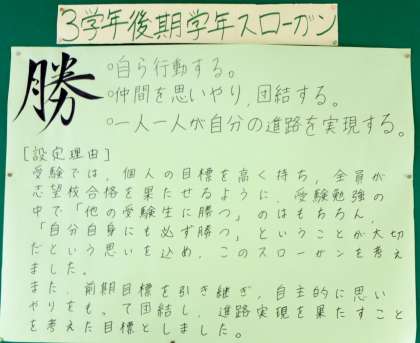 3学年後期学年スローガン
勝
○自ら行動する。
○仲間を思いやり,団結する。
○一人一人が自分の道路を実現する。
[設定理由]
受験では,個人の目標を高く持ち,全員が
志望校合格を果たせるように,受験勉強の
中で「他の受験生に勝つ」のはもちろん,
「自分自身にも必ず勝つ」ということが大切
だという思いを込め,このスローガンを考え
ました。
また,前期目標を引き継ぎ,自主的に思い
やりをもって団結し,進路実現を果たすこと
を考えた目標としました。